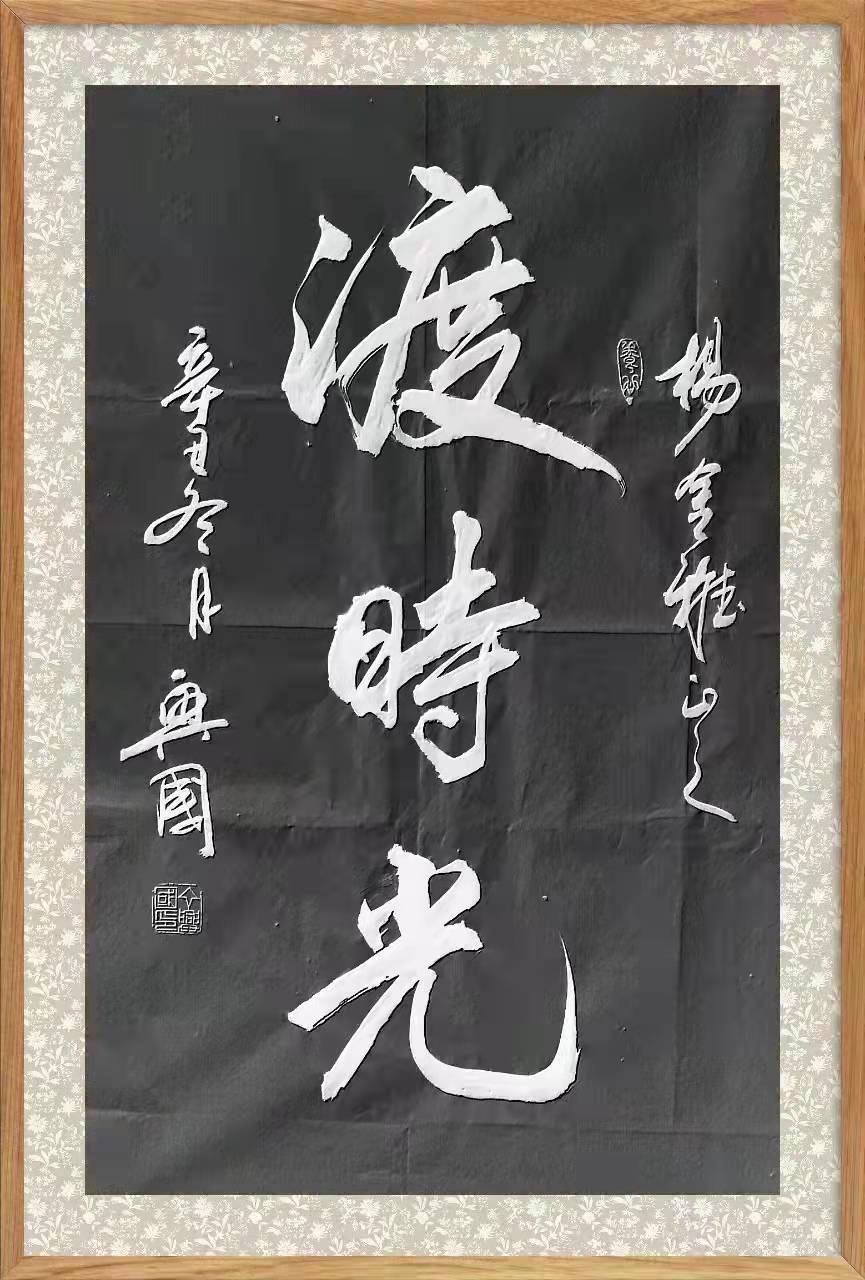 楊雅正之
渡時光
辛丑冬月興國